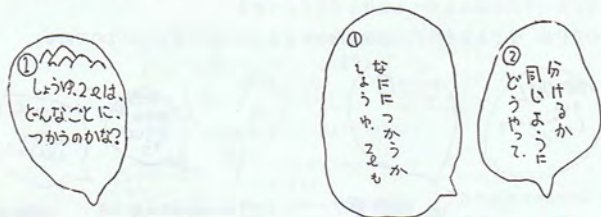 ①
しょうゆ.2ℓは、
どんなごとに、
つかうのかな?
①
しょうゆ.2ℓも
なににつかうか
②
どうやって、
同じように
分けるか